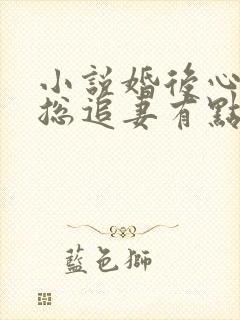 小說婚後心
總追妻有點
藍色獅